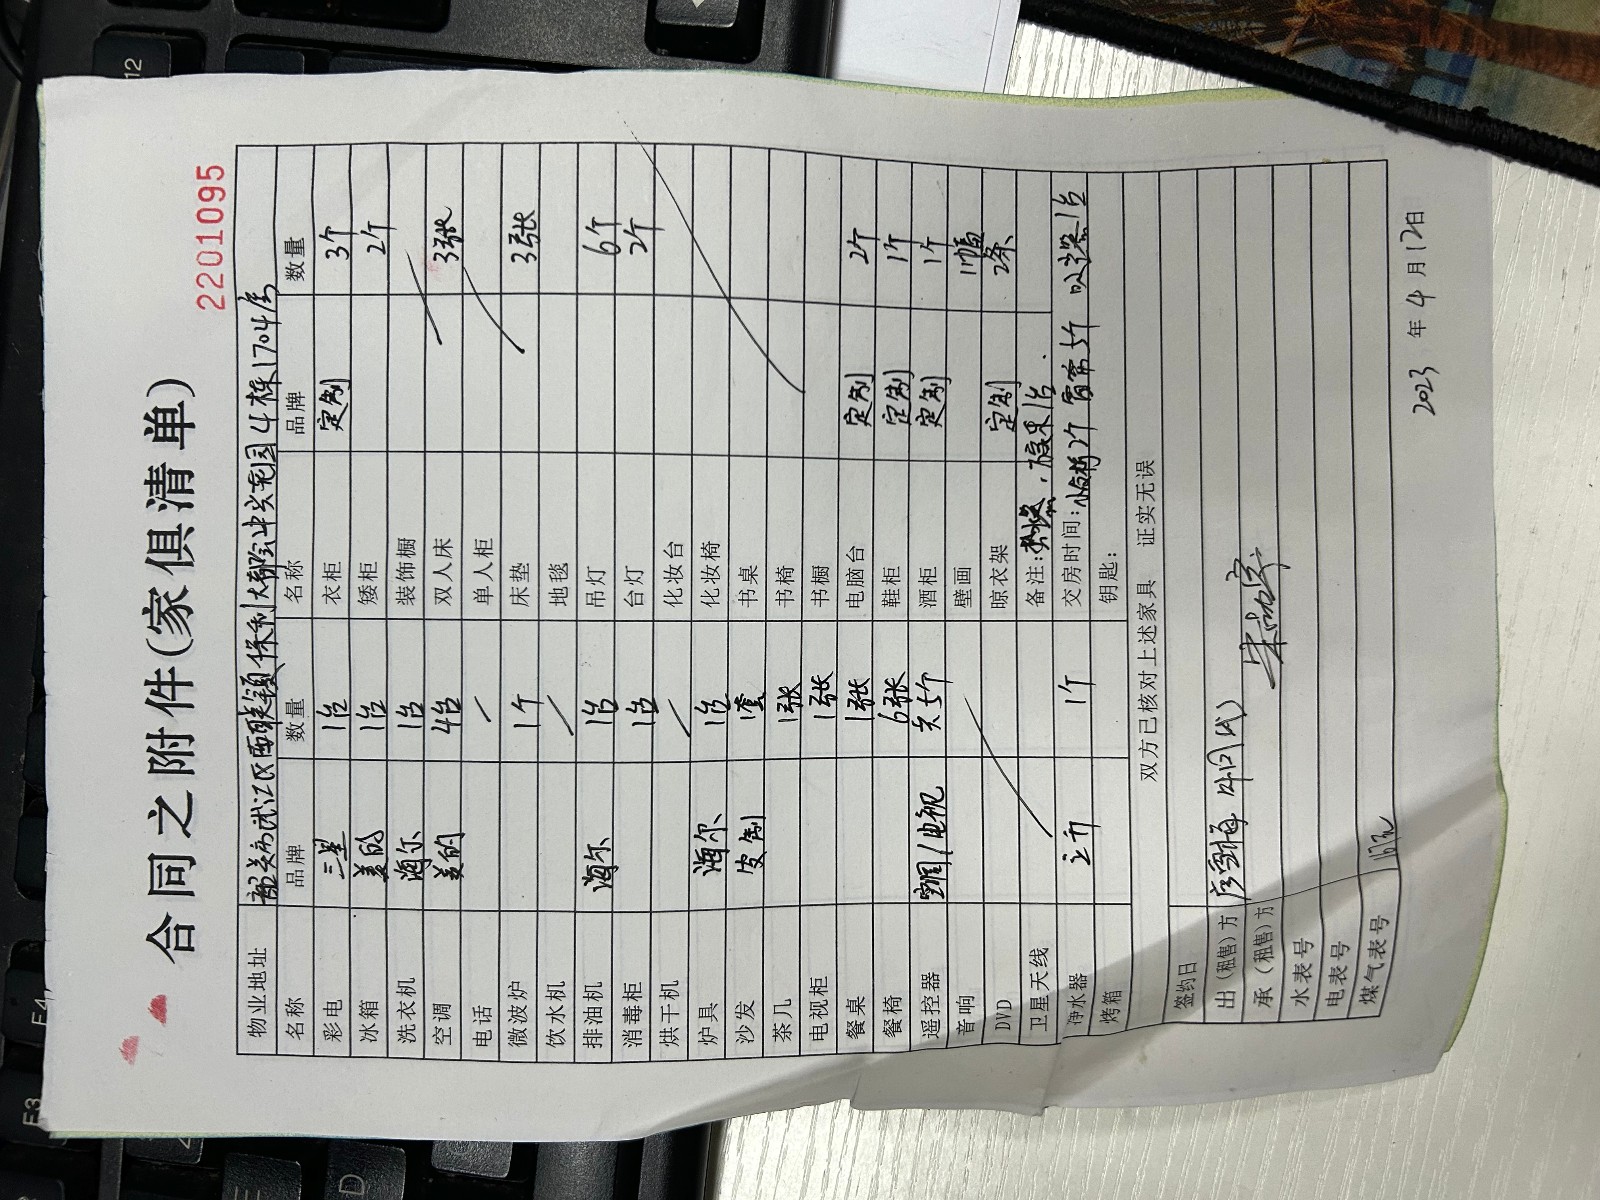 合同之附件(家俱清单)
2201095
物业地址 韶关市武江区西联镇保利大都会中央花园4栋1704房
名称 品牌 数量 名称 品牌 数量
彩电 三星 1台 衣柜 定制 3个
冰箱 美的 1台 矮柜 2个
洗衣机 海尔 1台 装饰橱
空调 美的 4台 双人床 3张
电话 单人柜
微波炉 1个 床垫 3张
饮水机 地毯
排油机 海尔 1台 吊灯 6个
消毒柜 1台 台灯 2个
烘干机 化妆台
炉具 海尔 1台 化妆椅
沙发 皮制 1套 书桌
茶几 1张 书椅
电视柜 1张 书橱
餐桌 1张 电脑台 定制 2个
餐椅 6张 鞋柜 定制 1个
遥控器 空调/电视 共5个 酒柜 定制 1个
音响 壁画 1幅
DVD 晾衣架 定制 2条
卫星天线 备注:
净水器 1个 交房时间: 2个 窗帘5个
烤箱 钥匙:
双方已核对上述家具 证实无误
签约日
出(租售)方
承(租售)方
水表号
电表号
煤气表号
2023 年 4 月 12日
F3
F4
12
D
E